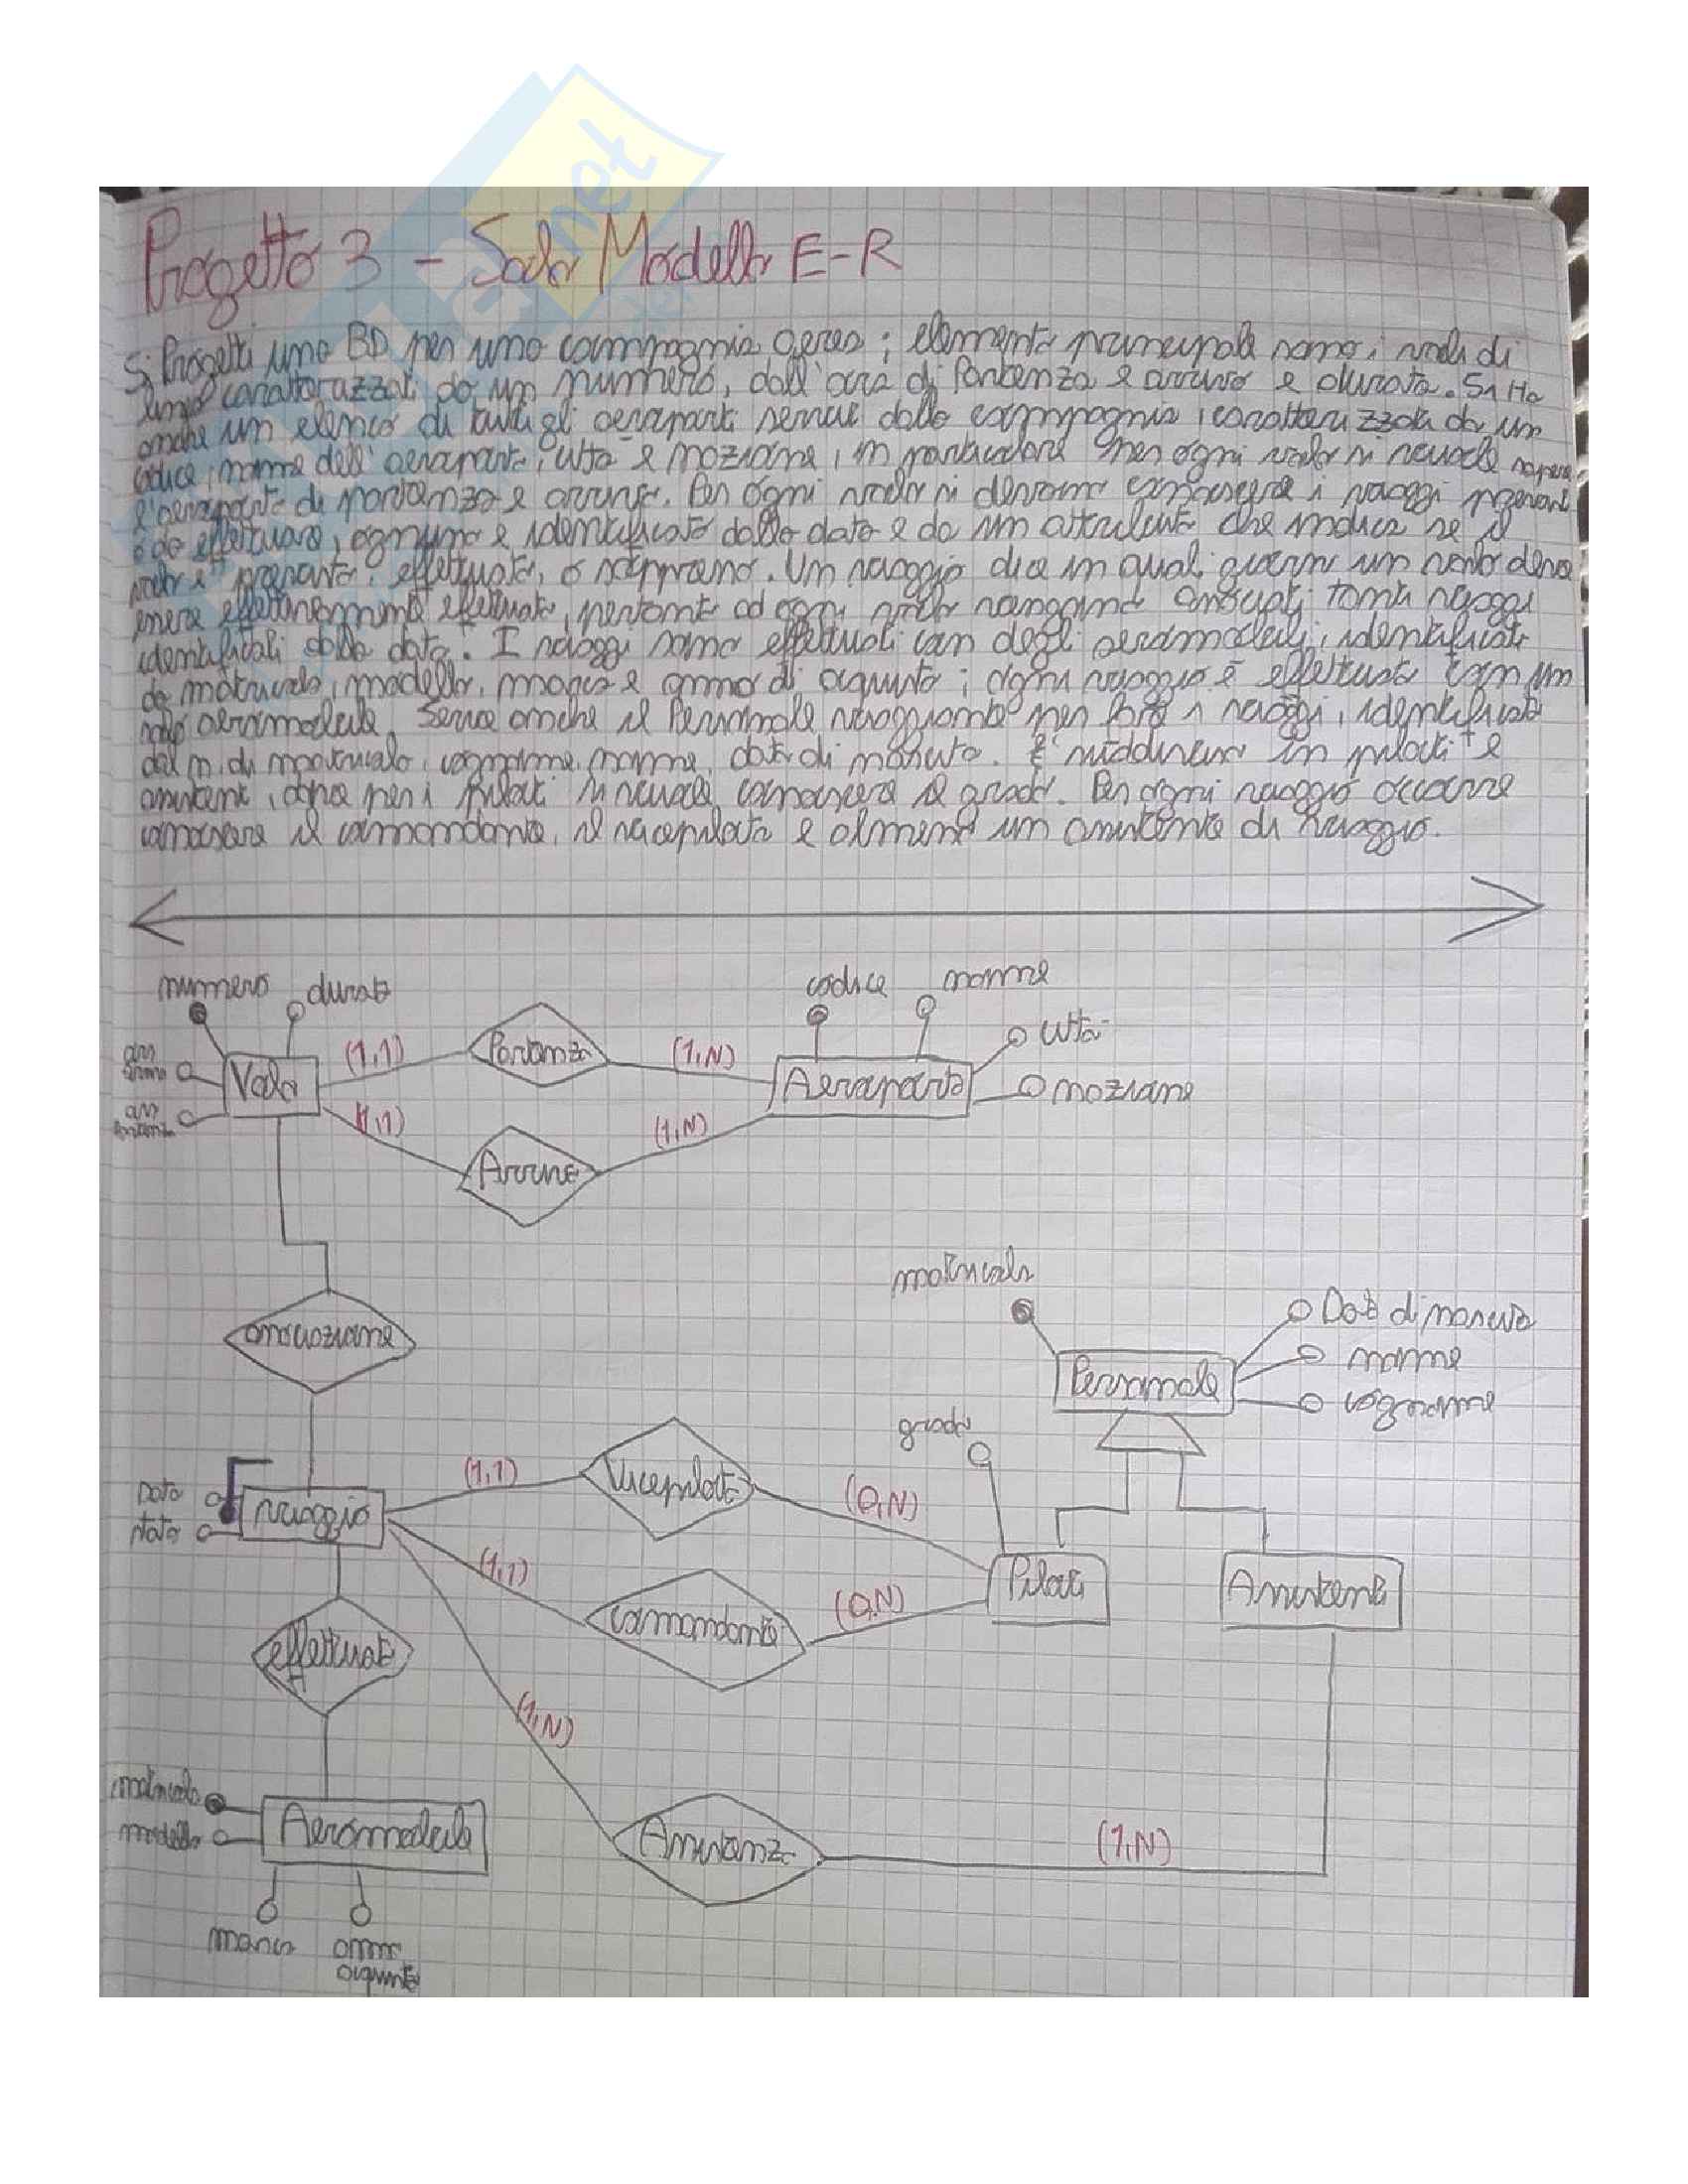 Progetto 3 - Solo Modello E-R
Si Progetti una BD per una compagnia aerea; elemento principale sono i voli di
linea caratterizzati da un numero, dall'ora di Partenza e arrivo e durata. Si Ha
anche un elenco di tutti gli aeroporti serviti dalla compagnia, caratterizzati da un
codice, nome dell'aeroporto, città e nazione, in particolare per ogni volo si vuole sapere
l'aeroporto di partenza e arrivo. Per ogni volo si devono conoscere i viaggi previsti
o da effettuare, ognuno è identificato dalla data e da un attributo che indica se il
volo è previsto, effettuato, o soppresso. Un viaggio dice in quali giorni un volo deve
essere effettivamente effettuato, pertanto ad ogni volo vengono associati tanti viaggi
identificati dalla data. I viaggi sono effettuati con degli aeromobili, identificati
da matricola, modello, marca e anno di acquisto; ogni viaggio è effettuato con un
solo aeromobile. Serve anche il Personale viaggiante per fare i viaggi, identificato
dal n. di matricola, cognome, nome, data di nascita. È suddiviso in piloti e
assistenti, dove per i piloti si vuole conoscere il grado. Per ogni viaggio occorre
conoscere il comandante, il vicepilota e almeno un assistente di viaggio.
numero
durata
codice
nome
ora
arrivo
Volo
(1,1)
Partenza
(1,N)
Aeroporto
città
nazione
ora
partenza
(1,1)
Arrivo
(1,N)
associazione
matricola
Data di nascita
Personale
nome
cognome
grado
Data
stato
viaggio
(1,1)
Vicepilota
(0,N)
(1,1)
comandante
(0,N)
Piloti
Assistenti
effettuato
(1,N)
matricola
modello
Aeromobile
Assistenza
(1,N)
marca
anno
acquisto